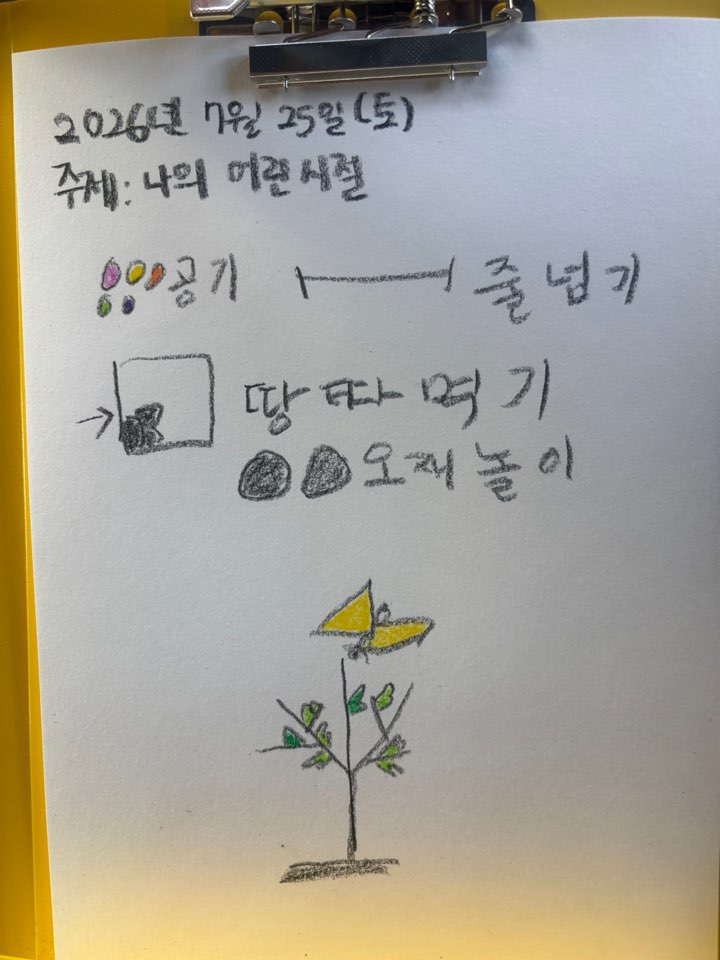 2026년 7월 25일(토)
주제: 나의 어린시절
공기 줄넘기
땅따먹기
오재놀이